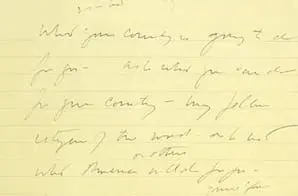 what your country is going to do
for you — ask what you can do
for your country — my fellow
citizens of the world — ask not
what America will do for you —